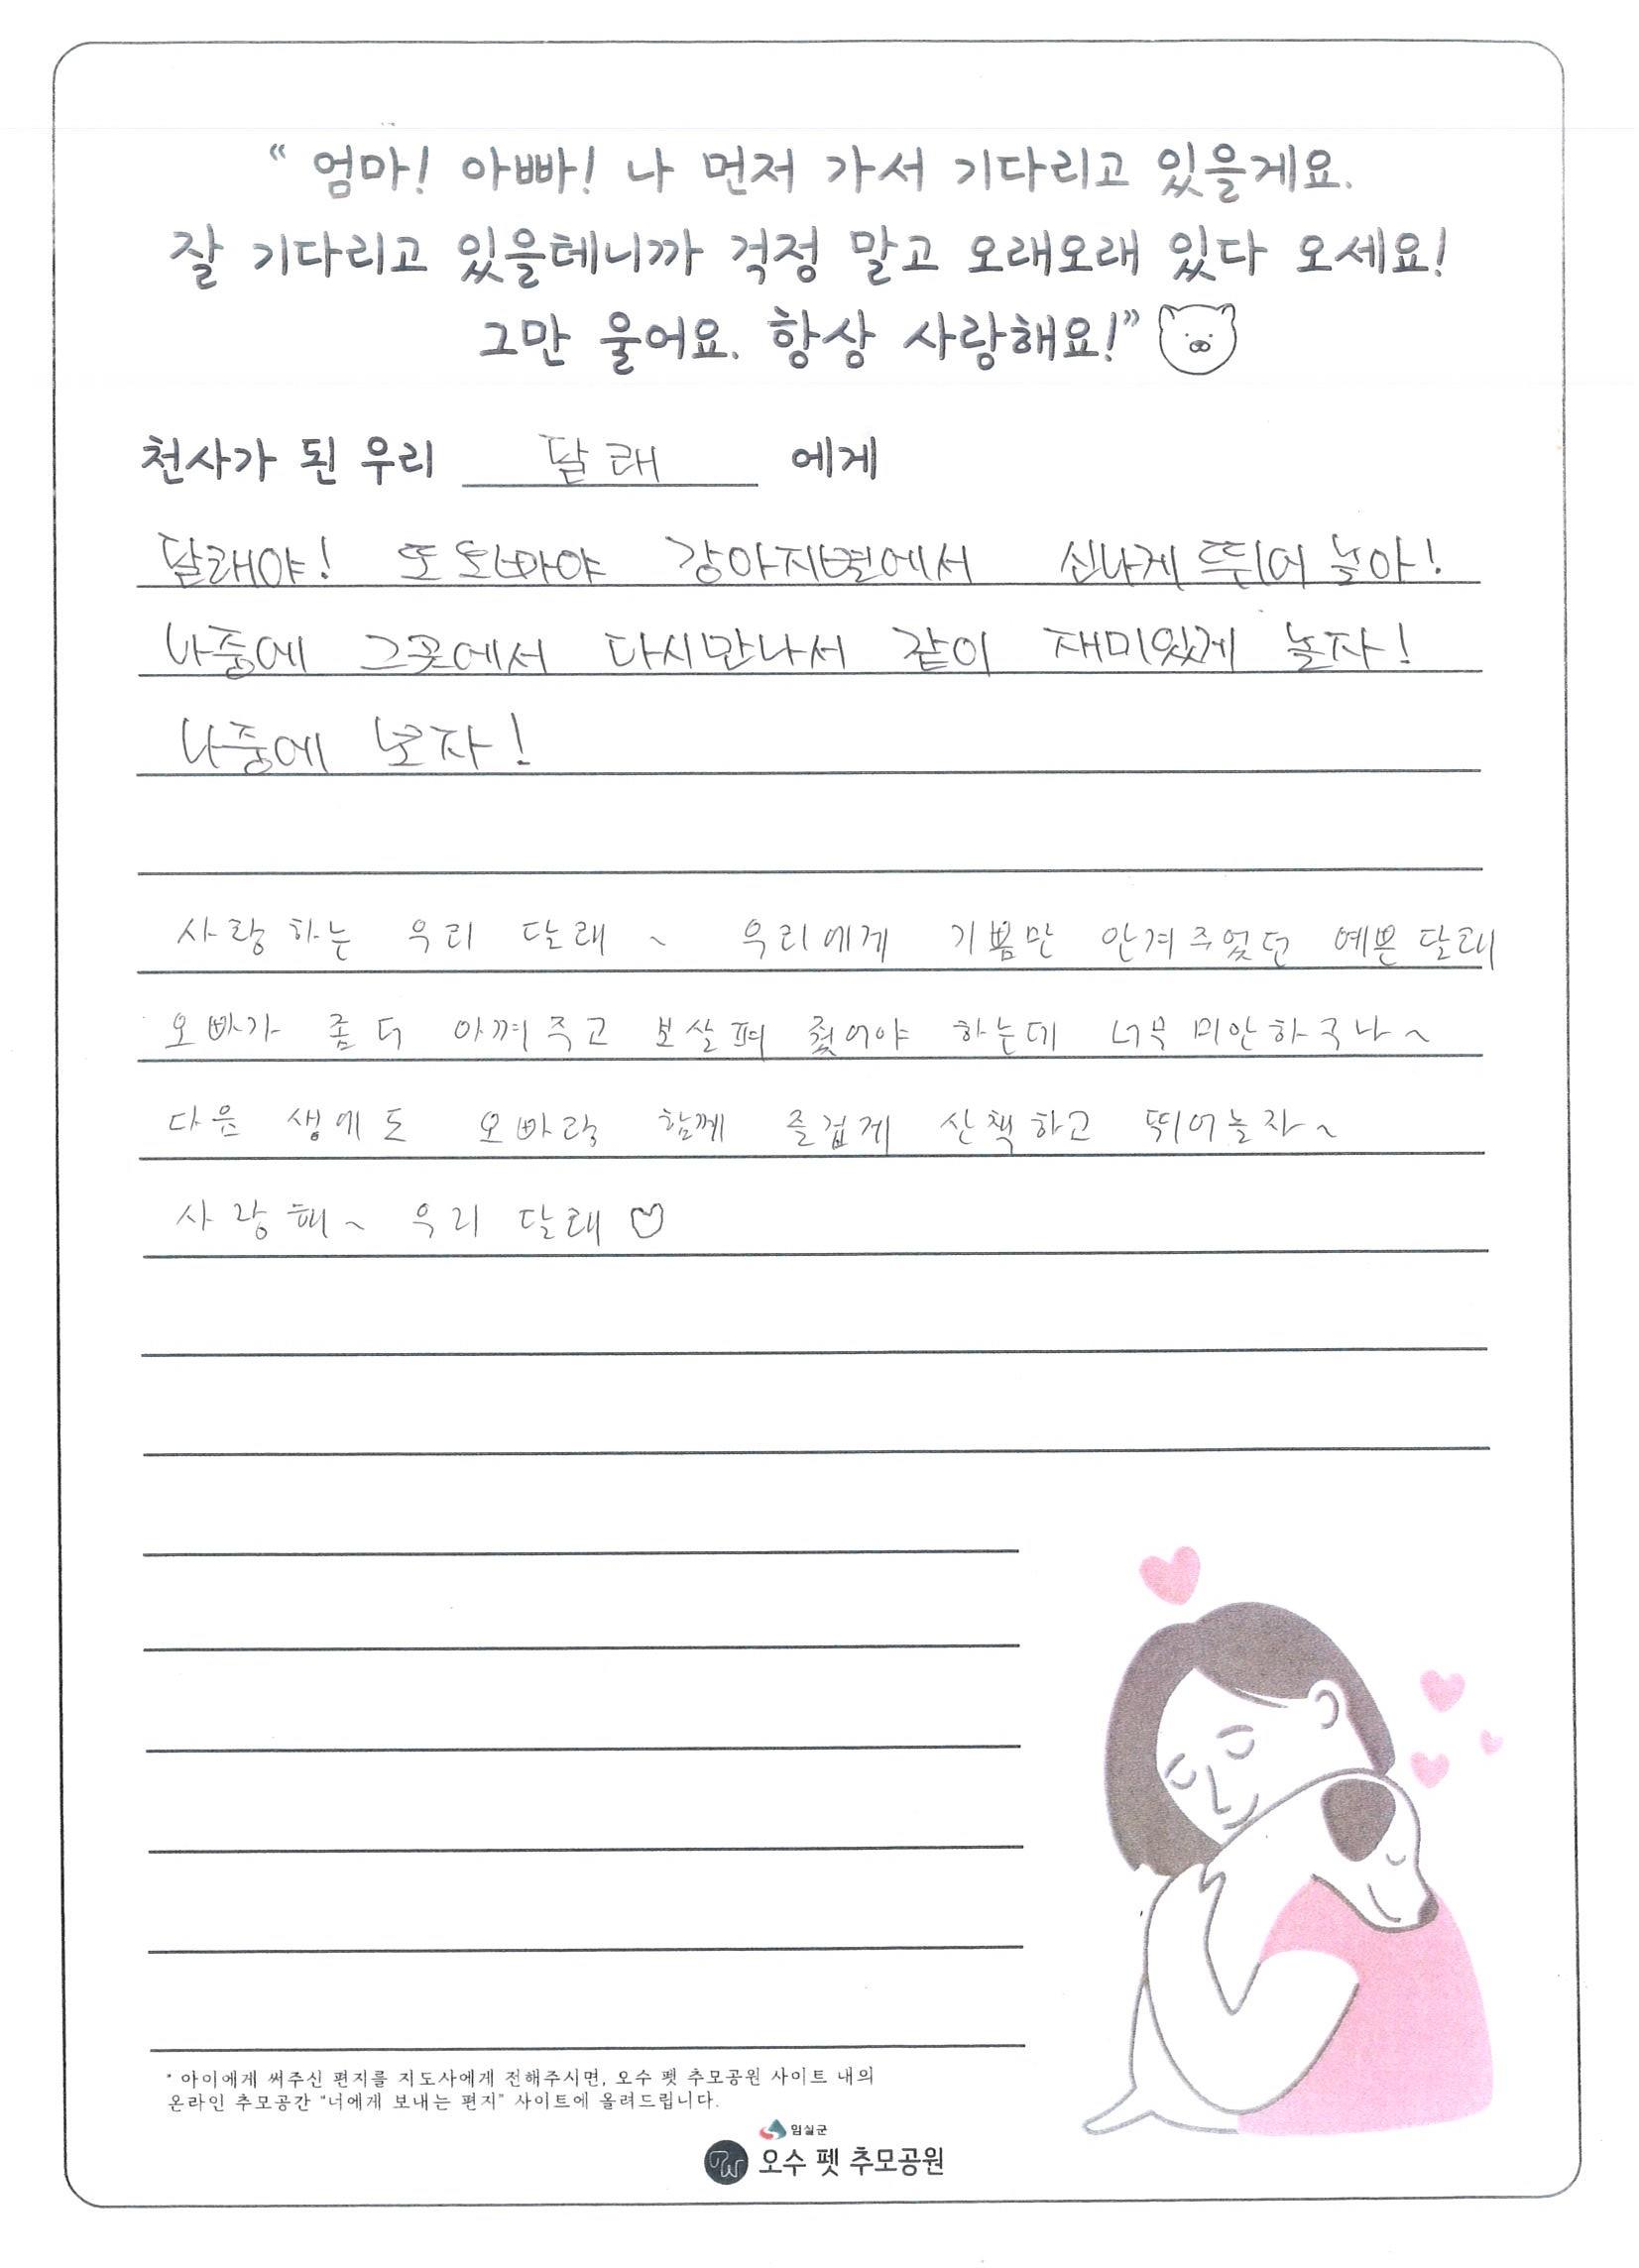 “ 엄마! 아빠! 나 먼저 가서 기다리고 있을게요.
잘 기다리고 있을테니까 걱정 말고 오래오래 있다 오세요!
그만 울어요. 항상 사랑해요!”
천사가 된 우리 달래 에게
달래야! 또 강아지별에서 신나게 뛰어 놀아!
나중에 그곳에서 다시만나서 같이 재미있게 놀자!
나중에 보자!
사랑하는 우리 달래 ~ 우리에게 기쁨만 안겨주었던 예쁜 달래
오빠가 좀 더 아껴주고 보살펴 줬어야 하는데 너무 미안하구나~
다음 생에도 오빠랑 함께 즐겁게 산책하고 뛰어놀자~
사랑해~ 우리 달래 ♡
* 아이에게 써주신 편지를 지도사에게 전해주시면, 오수 펫 추모공원 사이트 내의
온라인 추모공간 “너에게 보내는 편지” 사이트에 올려드립니다.
임실군
오수 펫 추모공원